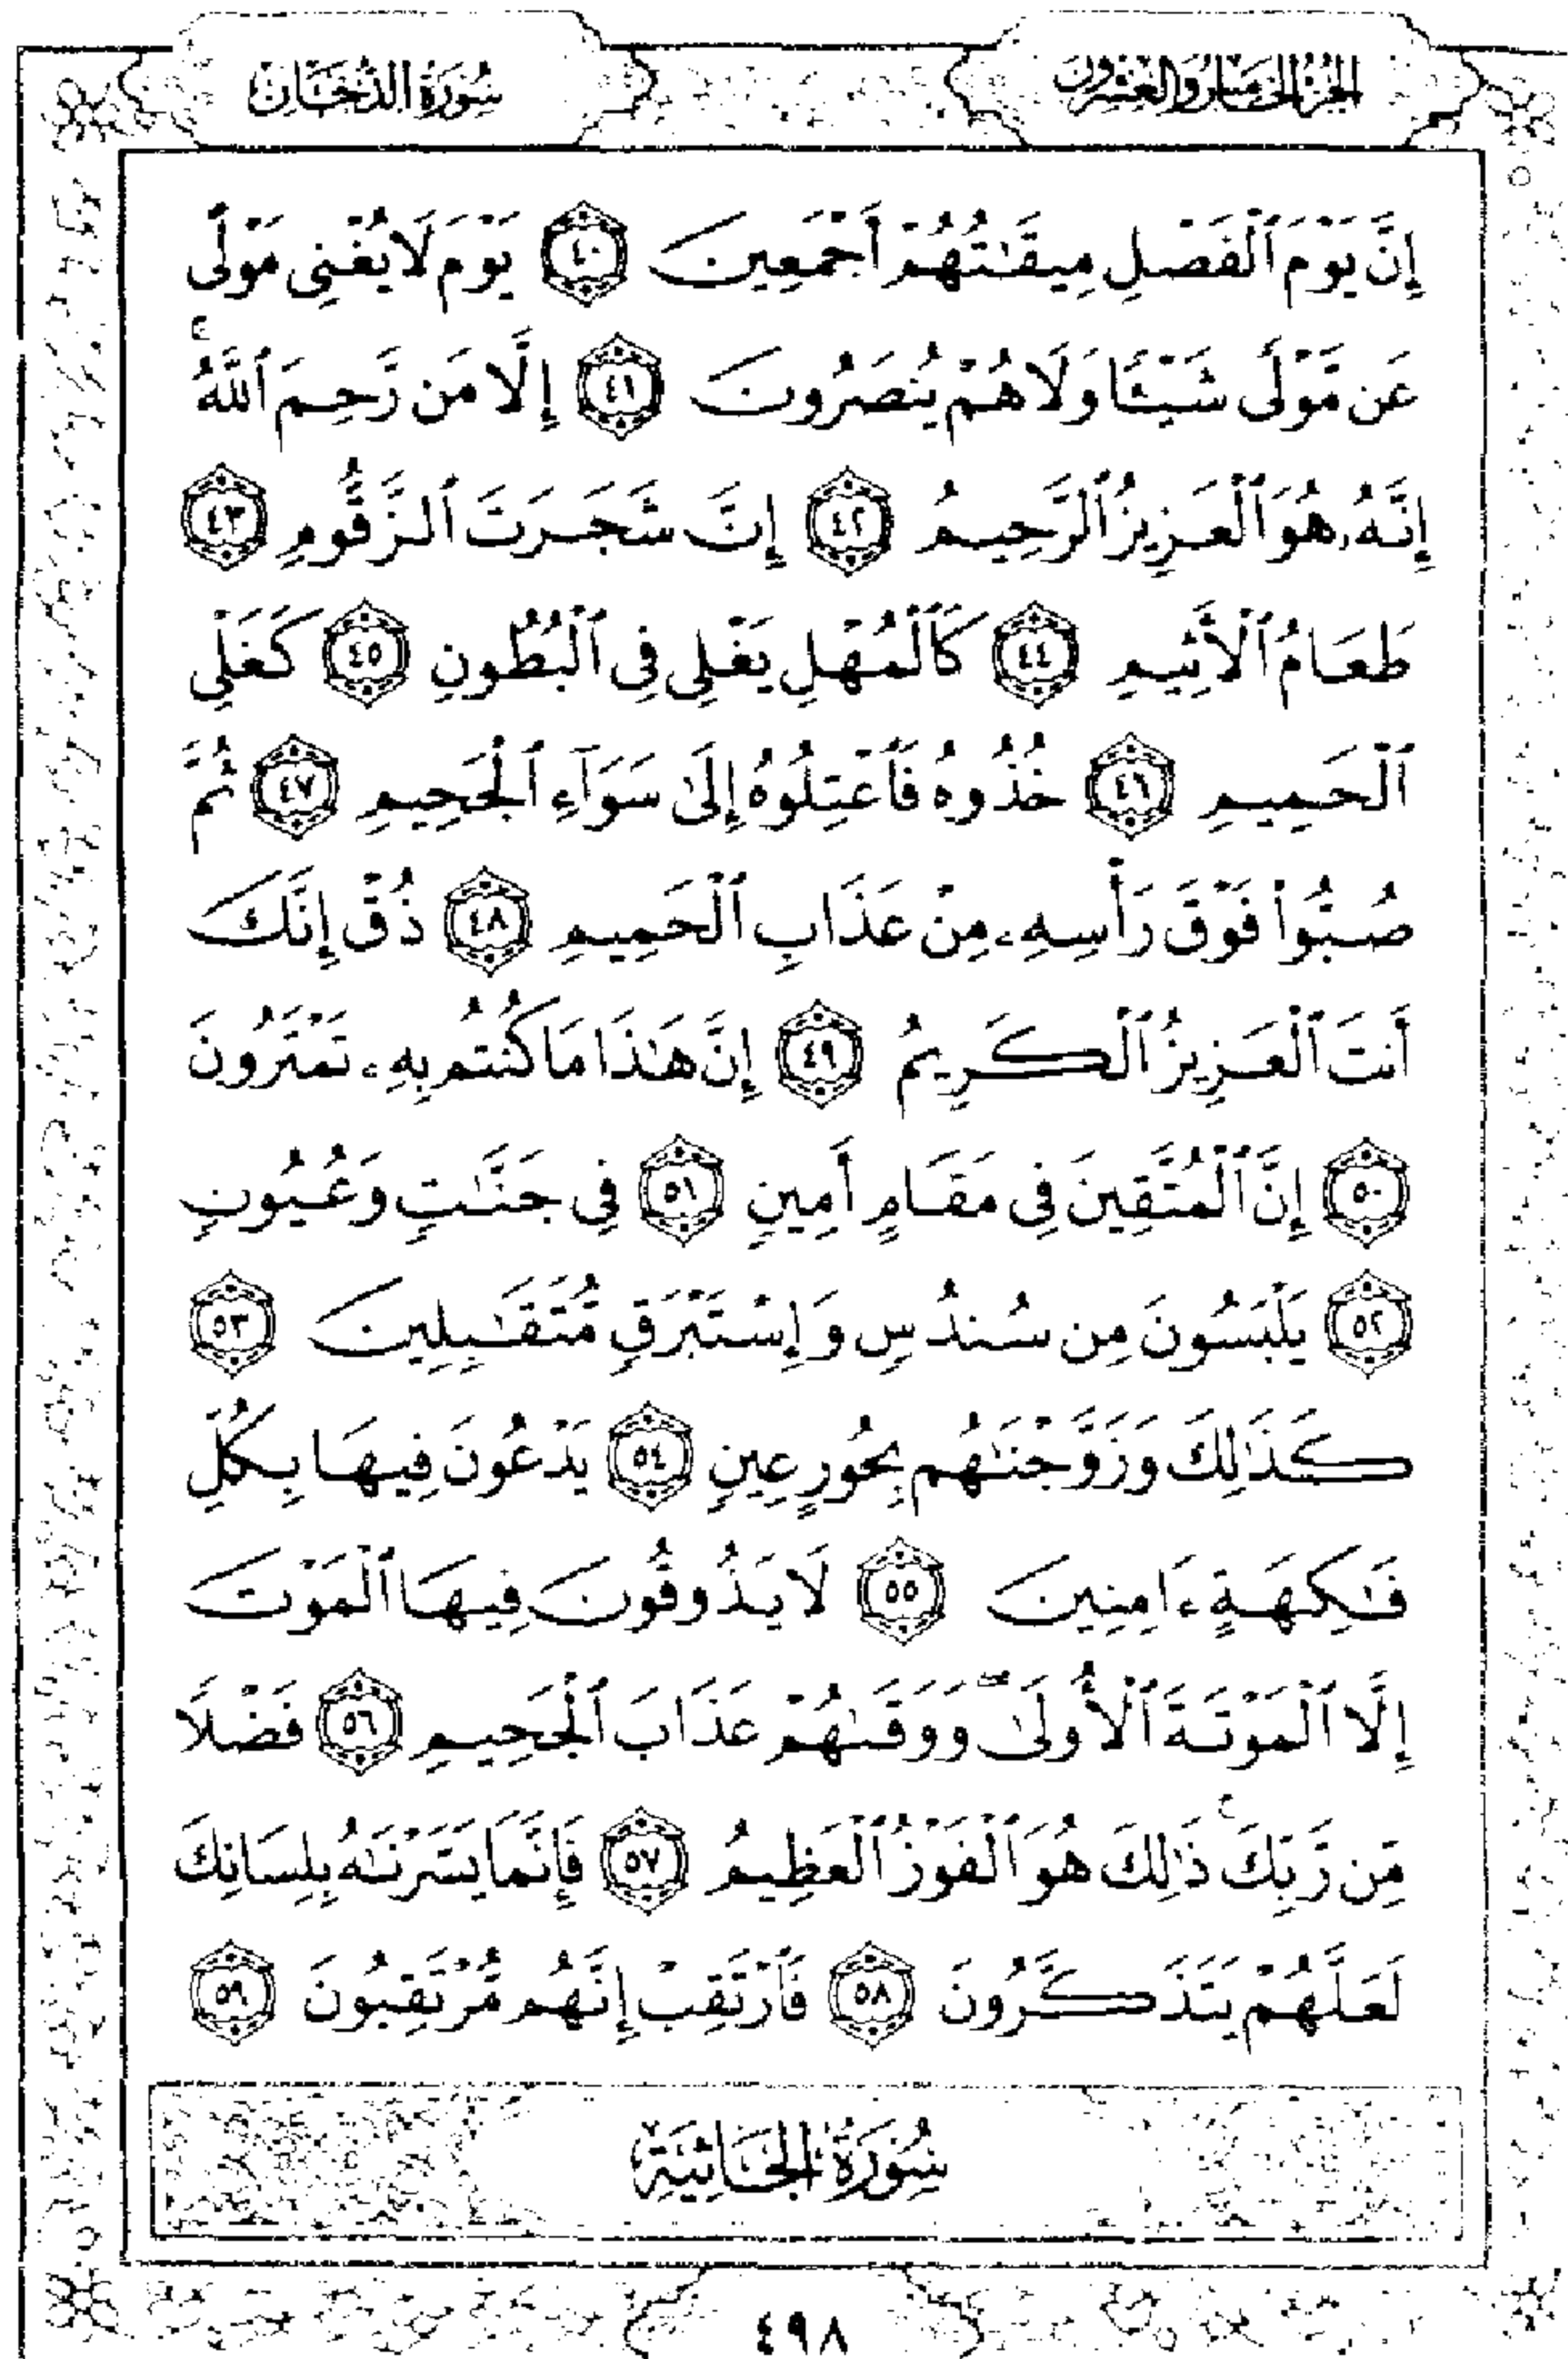 الجزء الخامس والعشرون
سورة الدخان
إِنَّ يَوْمَ ٱلْفَصْلِ مِيقَٰتُهُمْ أَجْمَعِينَ ٤٠ يَوْمَ لَا يُغْنِى مَوْلًى
عَن مَّوْلًى شَيْـًٔا وَلَا هُمْ يُنصَرُونَ ٤١ إِلَّا مَن رَّحِمَ ٱللَّهُ ۚ
إِنَّهُۥ هُوَ ٱلْعَزِيزُ ٱلرَّحِيمُ ٤٢ إِنَّ شَجَرَتَ ٱلزَّقُّومِ ٤٣
طَعَامُ ٱلْأَثِيمِ ٤٤ كَٱلْمُهْلِ يَغْلِى فِى ٱلْبُطُونِ ٤٥ كَغَلْىِ
ٱلْحَمِيمِ ٤٦ خُذُوهُ فَٱعْتِلُوهُ إِلَىٰ سَوَآءِ ٱلْجَحِيمِ ٤٧ ثُمَّ
صُبُّوا۟ فَوْقَ رَأْسِهِۦ مِنْ عَذَابِ ٱلْحَمِيمِ ٤٨ ذُقْ إِنَّكَ
أَنتَ ٱلْعَزِيزُ ٱلْكَرِيمُ ٤٩ إِنَّ هَٰذَا مَا كُنتُم بِهِۦ تَمْتَرُونَ
٥٠ إِنَّ ٱلْمُتَّقِينَ فِى مَقَامٍ أَمِينٍ ٥١ فِى جَنَّٰتٍ وَعُيُونٍ
٥٢ يَلْبَسُونَ مِن سُندُسٍ وَإِسْتَبْرَقٍ مُّتَقَٰبِلِينَ ٥٣
كَذَٰلِكَ وَزَوَّجْنَٰهُم بِحُورٍ عِينٍ ٥٤ يَدْعُونَ فِيهَا بِكُلِّ
فَٰكِهَةٍ ءَامِنِينَ ٥٥ لَا يَذُوقُونَ فِيهَا ٱلْمَوْتَ
إِلَّا ٱلْمَوْتَةَ ٱلْأُولَىٰ ۖ وَوَقَىٰهُمْ عَذَابَ ٱلْجَحِيمِ ٥٦ فَضْلًا
مِّن رَّبِّكَ ۚ ذَٰلِكَ هُوَ ٱلْفَوْزُ ٱلْعَظِيمُ ٥٧ فَإِنَّمَا يَسَّرْنَٰهُ بِلِسَانِكَ
لَعَلَّهُمْ يَتَذَكَّرُونَ ٥٨ فَٱرْتَقِبْ إِنَّهُم مُّرْتَقِبُونَ ٥٩
سُورَةُ الجَاثِيَةِ
٤٩٨